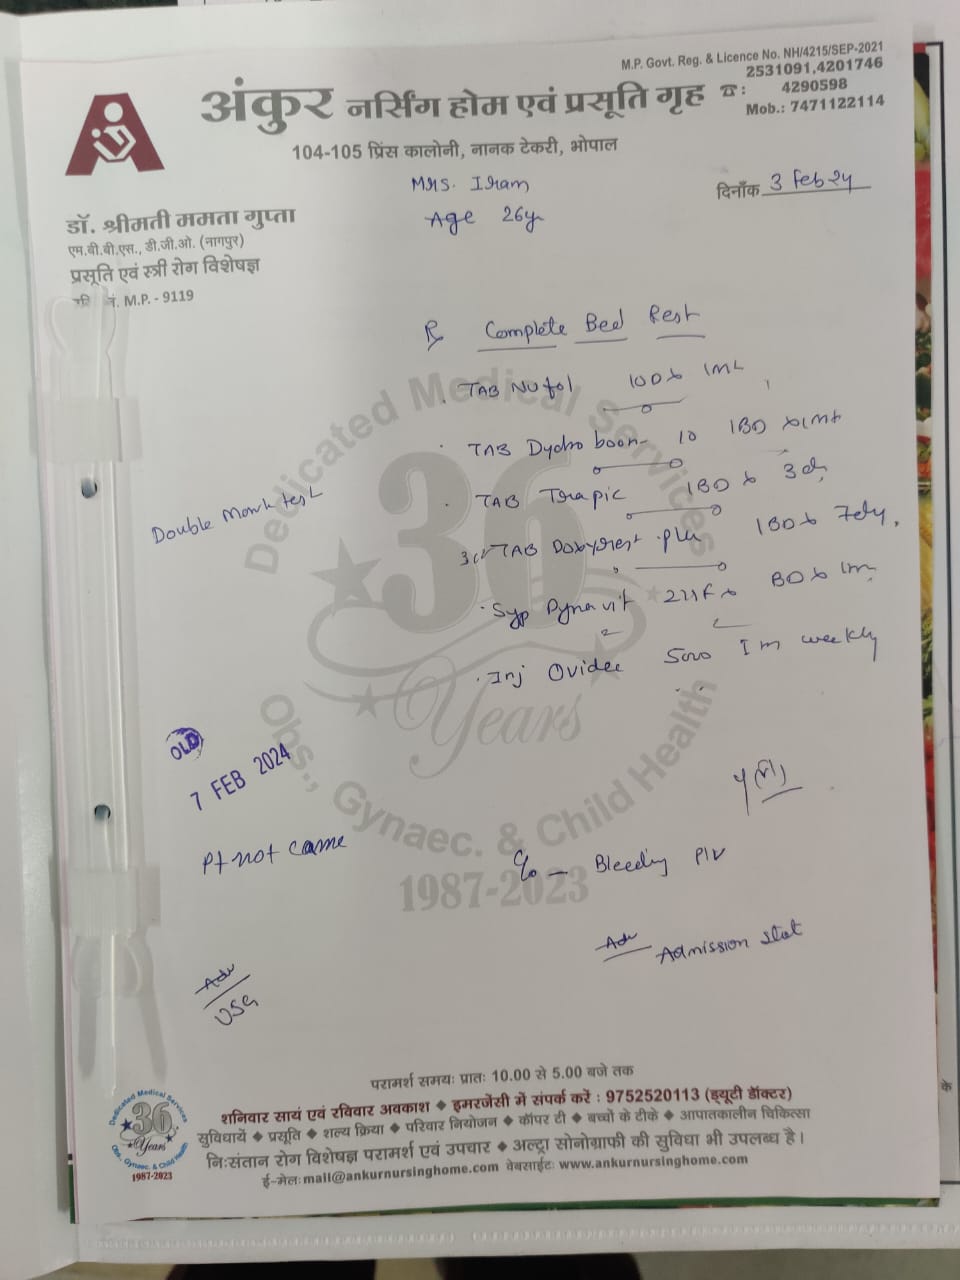 M.P. Govt. Reg. & Licence No. NH/4215/SEP-2021
अंकुर नर्सिंग होम एवं प्रसूति गृह ☎: 2531091,4201746
4290598
Mob.: 7471122114
104-105 प्रिंस कालोनी, नानक टेकरी, भोपाल
Mrs. Iram
दिनाँक 3 Feb 24
Age 26y
डॉ. श्रीमती ममता गुप्ता
एम.बी.बी.एस., डी.जी.ओ. (नागपुर)
प्रसूति एवं स्त्री रोग विशेषज्ञ
नं. M.P. - 9119
Rx Complete Bed Rest
TAB Nufol 100x
TAB Dydroboon 10 1BD x 1mt
TAB Trapic 1BD x 3d
Double Mark test
TAB Doxyrest plu 1BD x 7dy.
Syp Dynavit BD x 1m
Inj 500 Im weekly
OLD
7 FEB 2024
Pt not came
c/o - Bleeding P/V
Adv Admission stat
Adv
USG
Dedicated Medical Services
36 Years
Obs., Gynaec. & Child Health
1987-2023
परामर्श समयः प्रातः 10.00 से 5.00 बजे तक
शनिवार सायं एवं रविवार अवकाश ◆ इमरजेंसी में संपर्क करें : 9752520113 (ड्यूटी डॉक्टर)
सुविधायें ◆ प्रसूति ◆ शल्य क्रिया ◆ परिवार नियोजन ◆ कॉपर टी ◆ बच्चों के टीके ◆ आपातकालीन चिकित्सा
निःसंतान रोग विशेषज्ञ परामर्श एवं उपचार ◆ अल्ट्रा सोनोग्राफी की सुविधा भी उपलब्ध है।
ई-मेलः mail@ankurnursinghome.com वेबसाईटः www.ankurnursinghome.com
Dedicated Medical Services
36 Years
Obs., Gynaec. & Child Health
1987-2023
के